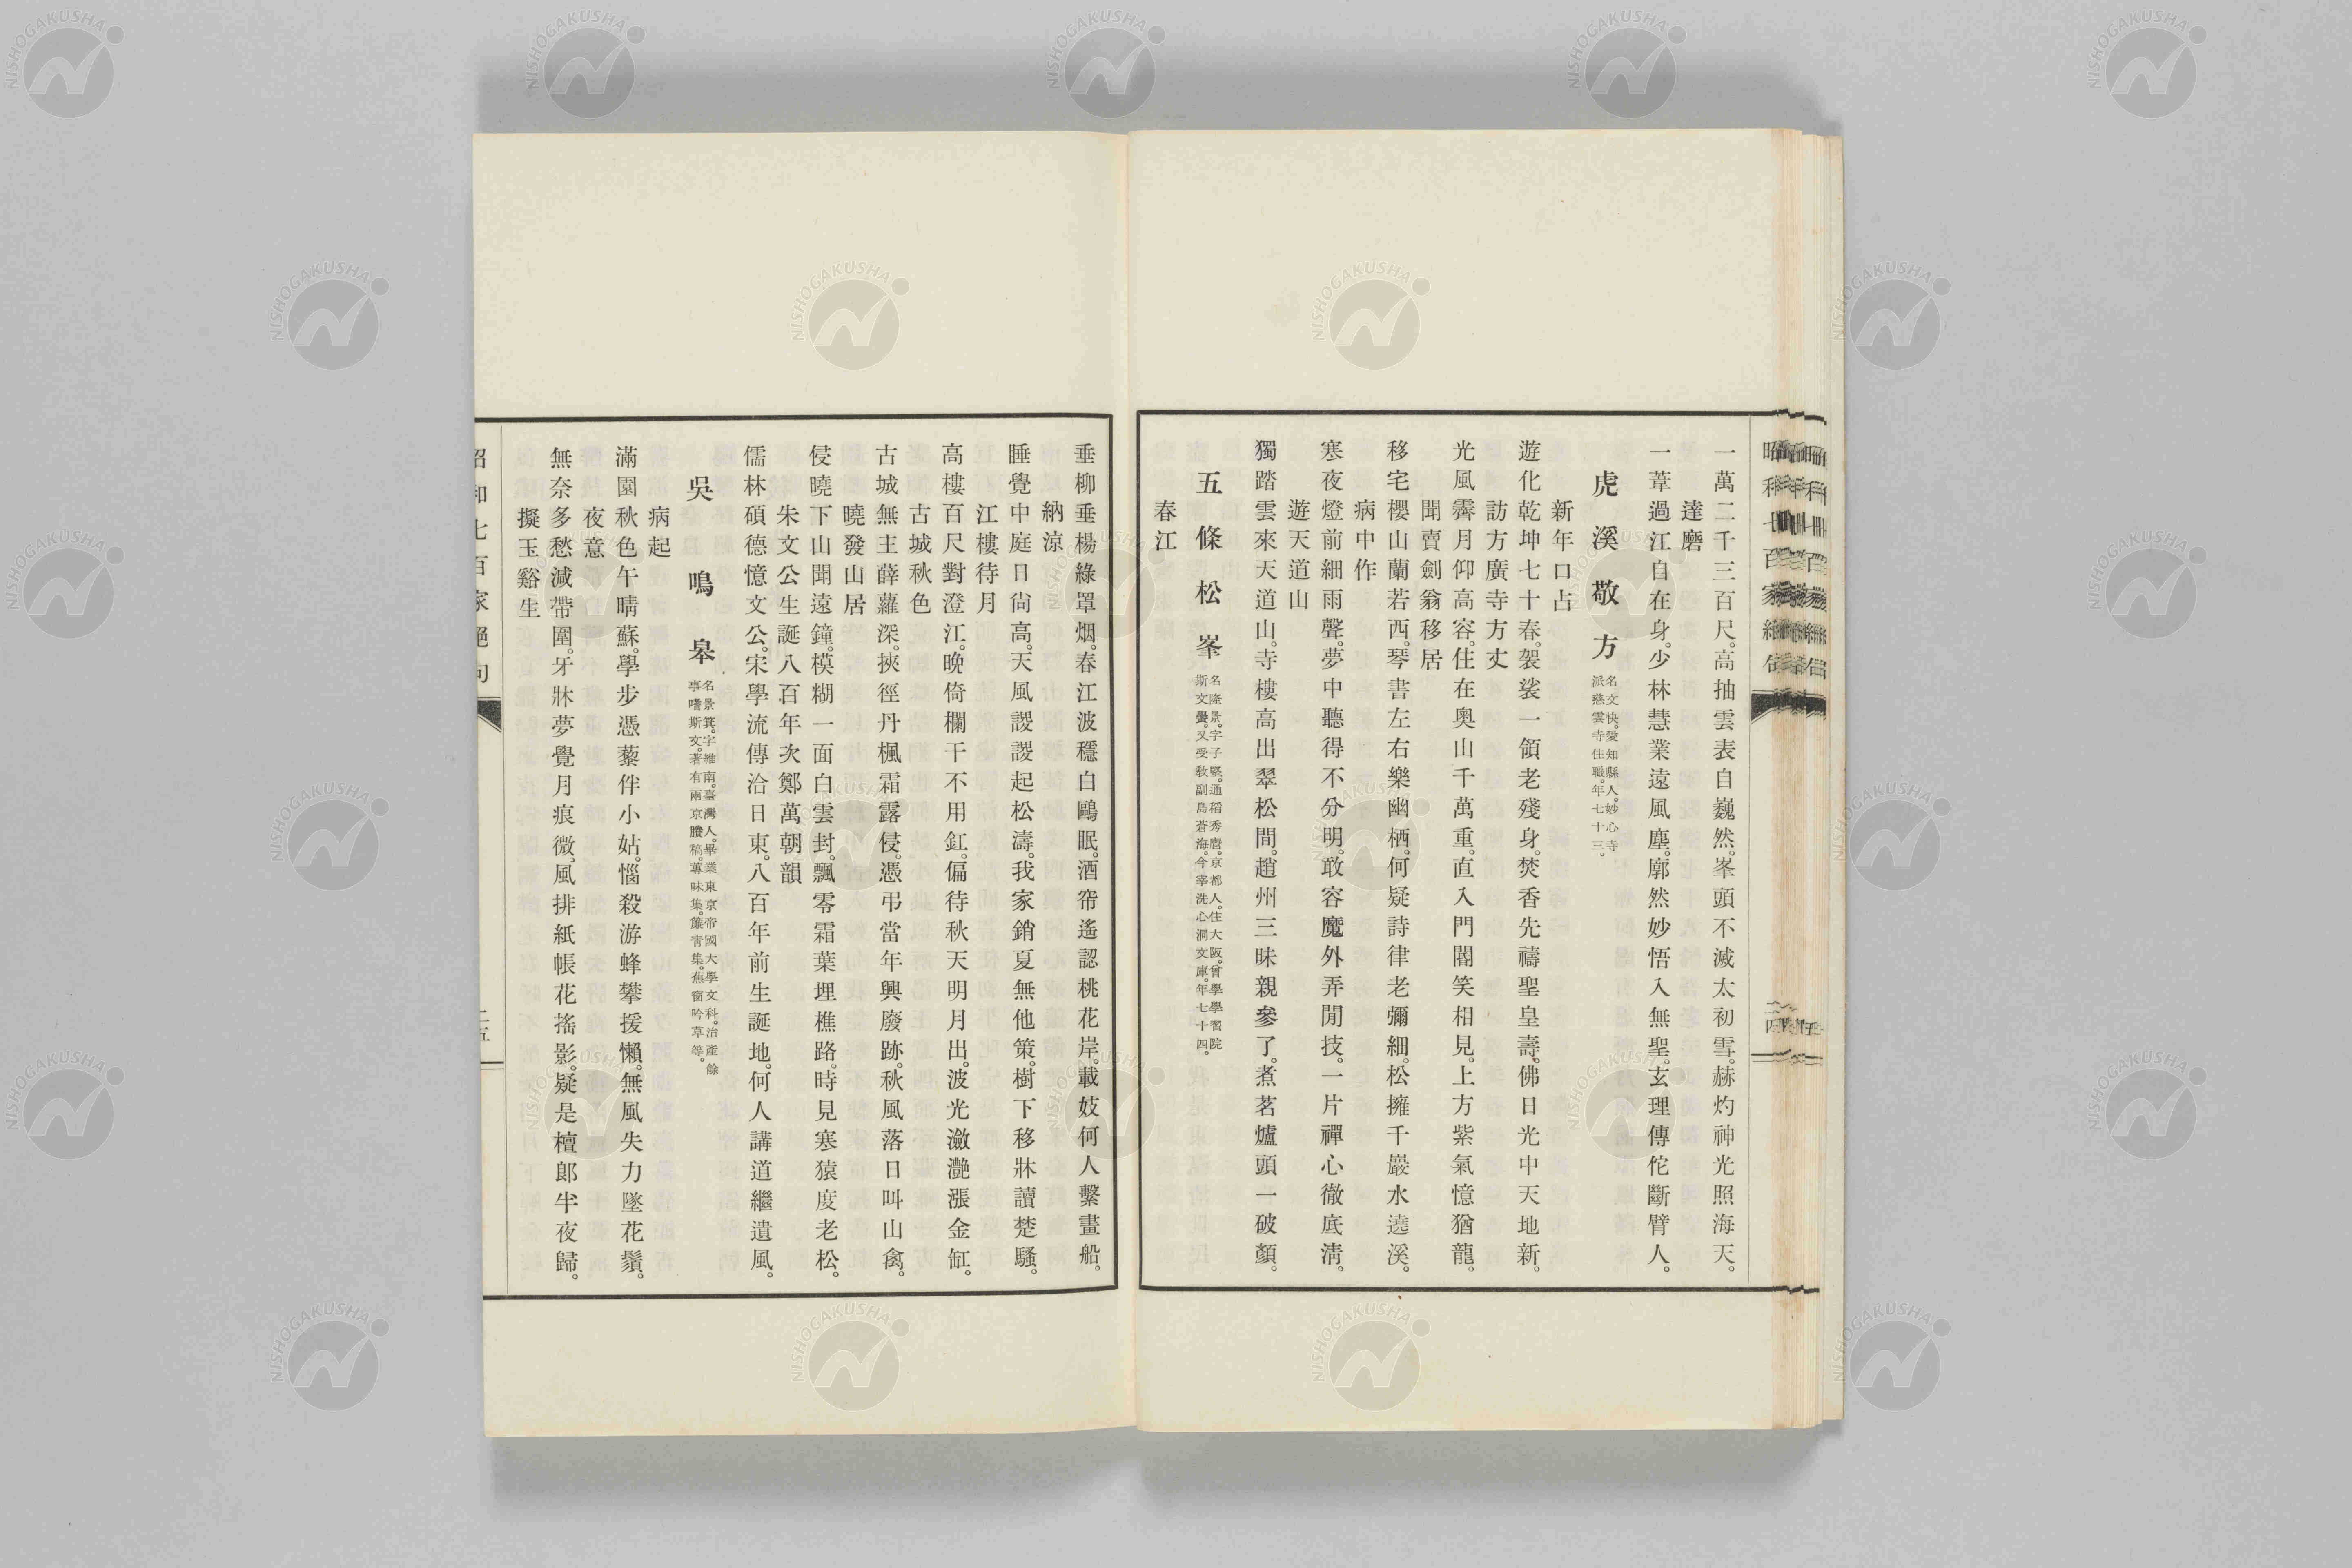 一萬二千三百尺。高抽雲表自巍然。峯頭不滅太初雪。赫灼神光照海天。
達磨
一葦過江自在身。少林慧業遠風塵。廓然妙悟入無聖。玄理傳佗斷臂人。
虎溪敬方
名文快。愛知縣人。妙心寺
派慈雲寺住職。年七十三。
新年口占
遊化乾坤七十春。袈裟一領老殘身。焚香先禱聖皇壽。佛日光中天地新。
訪方廣寺方丈
光風霽月仰高容。住在奧山千萬重。直入門閣笑相見。上方紫氣憶猶龍。
聞賣劍翁移居
移宅櫻山蘭若西。琴書左右樂幽栖。何疑詩律老彌細。松擁千巖水遶溪。
病中作
寒夜燈前細雨聲。夢中聽得不分明。敢容魔外弄閒技。一片禪心徹底淸。
遊天道山
獨踏雲來天道山。寺樓高出翠松間。趙州三昧親參了。煮茗爐頭一破顏。
五條松峯
名隆景。字子堅。通稻秀麿。京都人。住大阪。曾學學習院
斯文黌。又受敎副島蒼海。今宰洗心洞文庫。年七十四。
春江
垂柳垂楊綠罩烟。春江波穩白鷗眠。酒帘遙認桃花岸。載妓何人繫畫船。
納涼
睡覺中庭日尙高。天風謖謖起松濤。我家銷夏無他策。樹下移牀讀楚騷。
江樓待月
高樓百尺對澄江。晚倚欄干不用釭。偏待秋天明月出。波光瀲灔漲金缸。
古城秋色
古城無主薜蘿深。挾徑丹楓霜露侵。憑弔當年興廢跡。秋風落日叫山禽。
曉發山居
侵曉下山聞遠鐘。模糊一面白雲封。飄零霜葉埋樵路。時見寒猿度老松。
朱文公生誕八百年次鄭萬朝韻
儒林碩德憶文公。宋學流傳洽日東。八百年前生誕地。何人講道繼遺風。
吳鳴皋
名景箕。字維南。臺灣人。畢業東京帝國大學文科。治產餘
事嗜斯文。著有兩京賸稿。蓴味集。簾青集。蕉窗吟草等。
病起
滿園秋色午晴蘇。學步憑藜伴小姑。惱殺游蜂攀援懶。無風失力墜花鬚。
夜意
無奈多愁減帶圍。牙牀夢覺月痕微。風排紙帳花搖影。疑是檀郎半夜歸。
擬玉谿生
昭和七百家絕句
二五